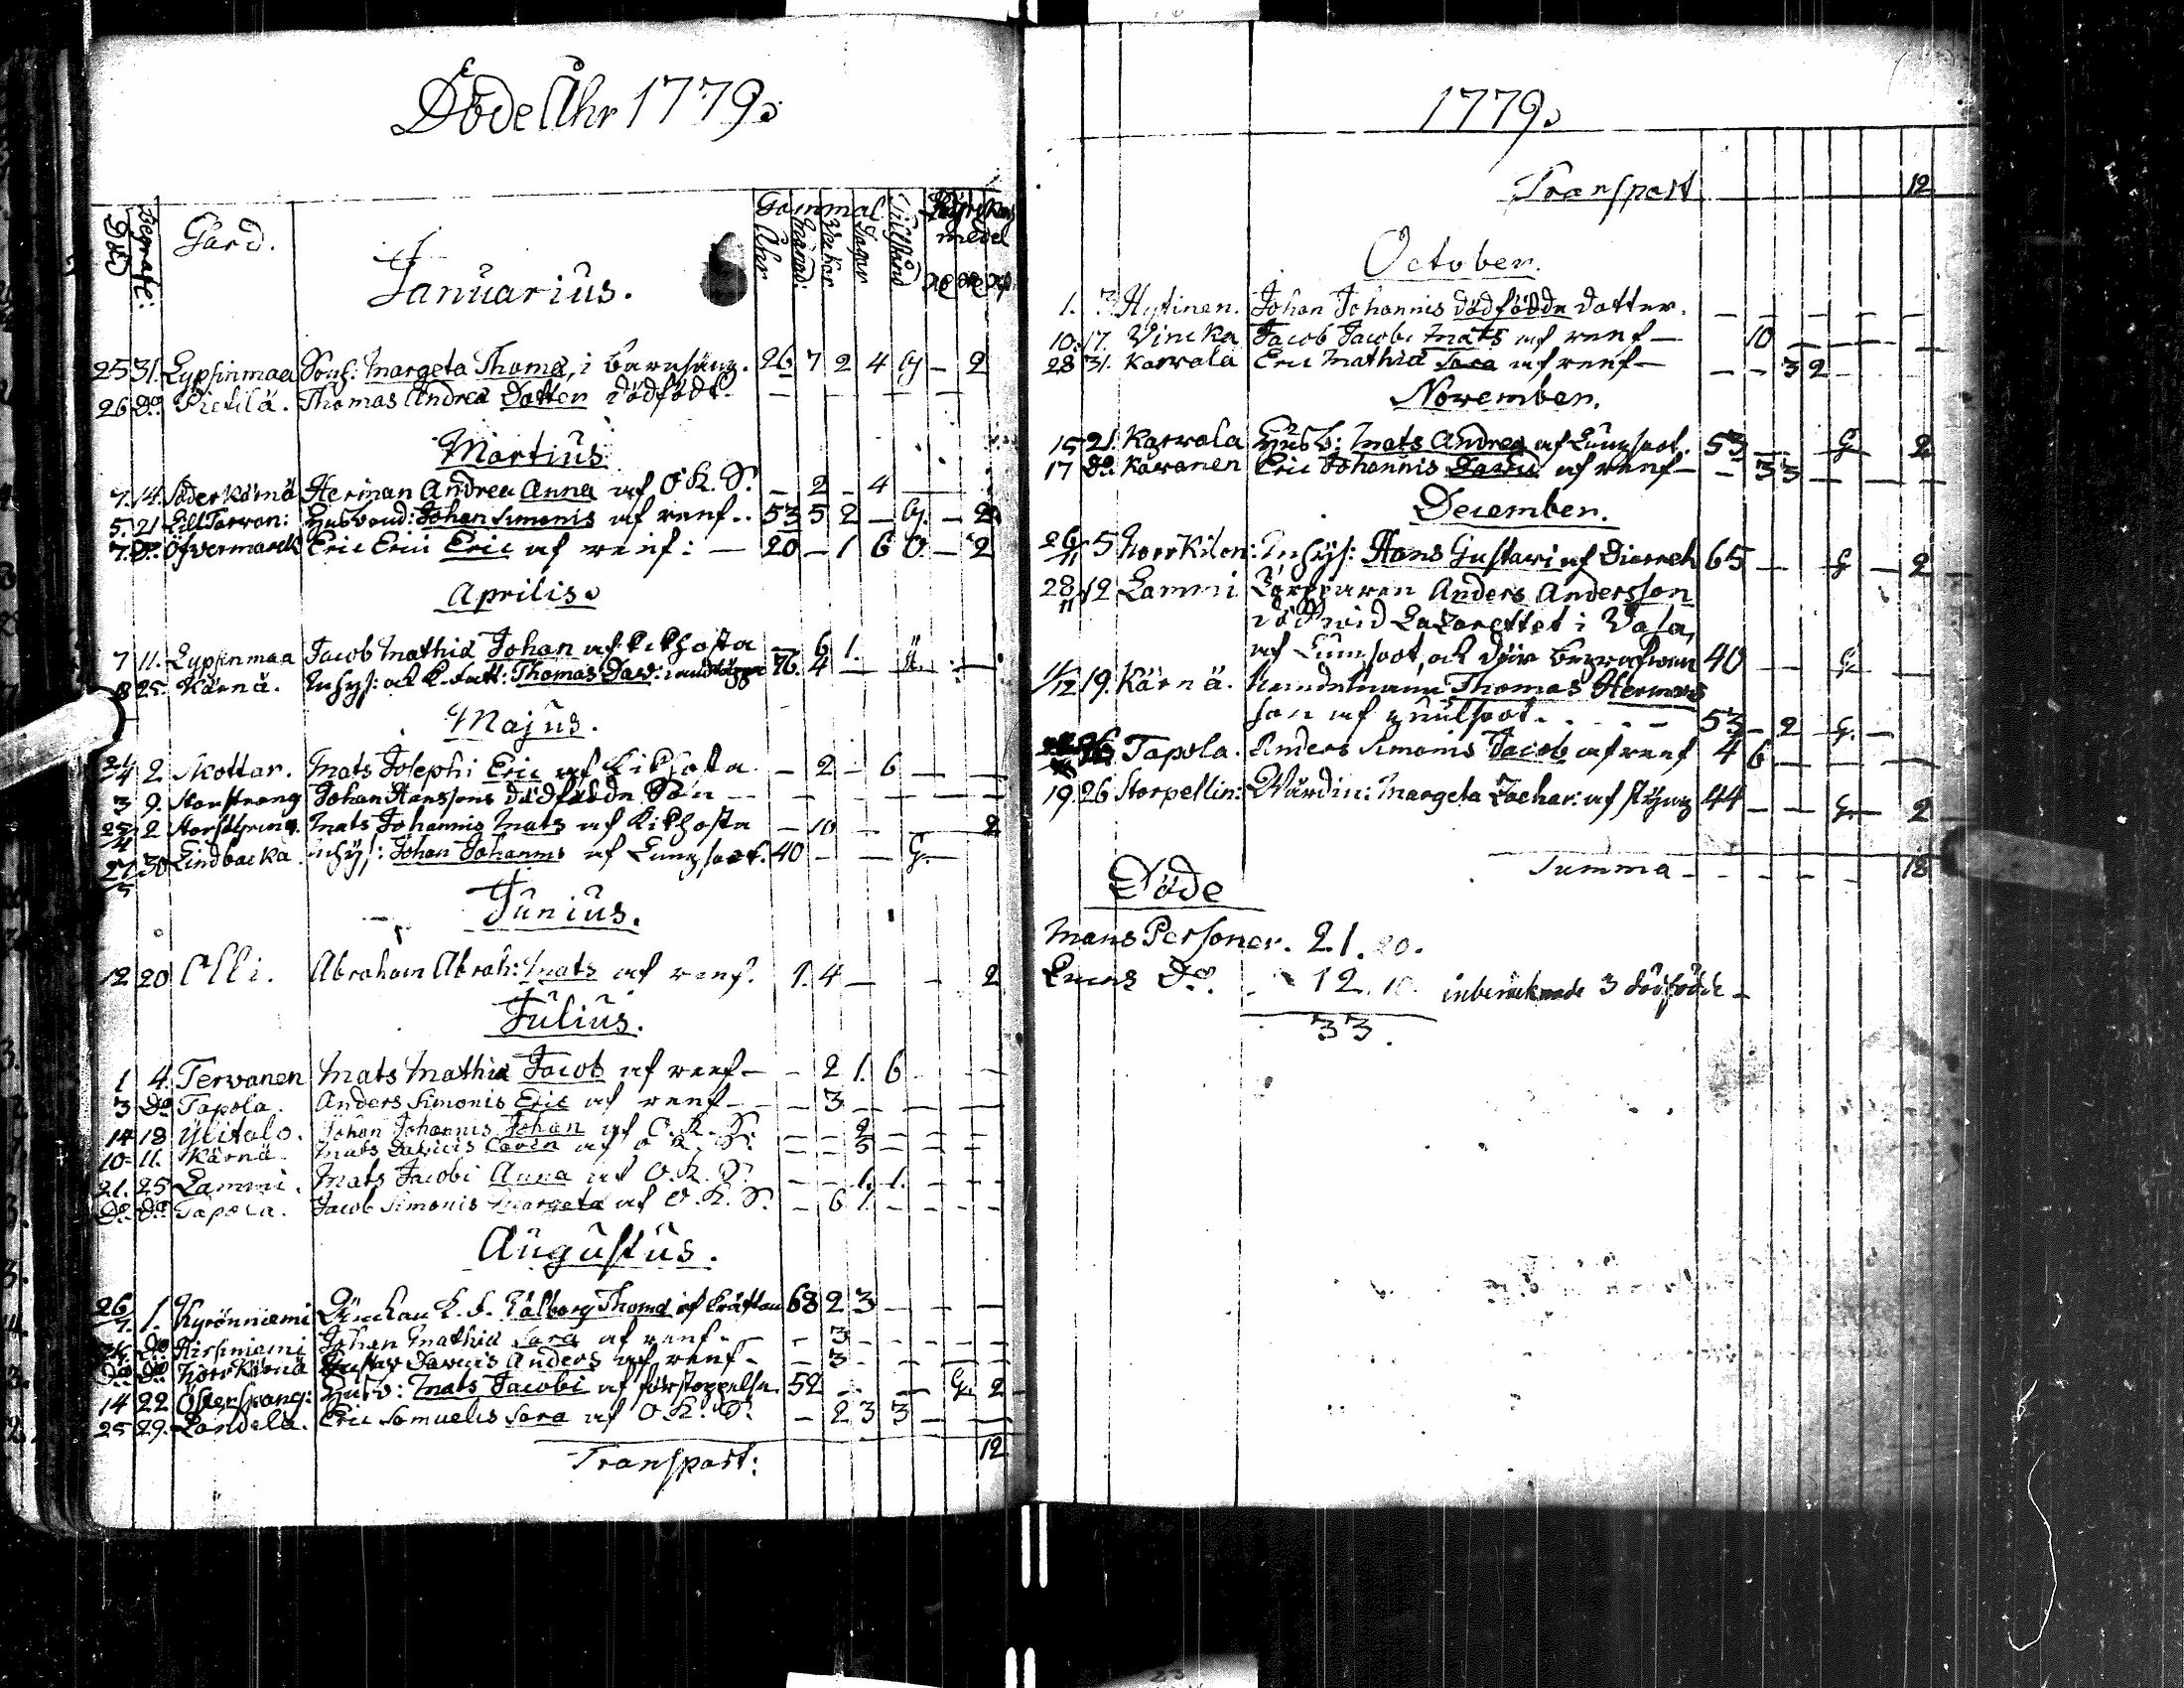 Döde Åhr 1779.
Död
Begrafe:
Gård.
Januarius.
Gammal
Åhr
Månad:
Veckor
Dagar
medel
25 31. Lypsinmaa Margeta Thomæ, i barnsäng. 26 7 2 4 G – 2
26 Do. Pietilä. Thomas Andreæ Dotter dödfödt – – – – –
Martius
7. 14. Söderkärnä Herman Andreæ Anna af O. K. S. – 2 – 4 –
5. 21. Lill Tarvon: Husbond: Johan Simonis af renf. 53 5 2 – G. – 2
7. Do. Öfvermarck Eric Erici Eric af renf: – 20 – 1 6 O – 2
Aprilis.
7 11. Lypsinmaa Jacob Mathiæ Johan af kikhosta – 6 1.
8 25. Kärnä. Inhys: och Thomas Dav: 76. 4 –
Majus.
24/4 2 Skottar. Mats Josephi Eric af Kikhosta – 2 – 6 – –
3 9. Storstrang Johan Hanssons dödfödde Son – – – – –
25/4 2 Mats Johannis Mats af Kikhosta – 10 – – 2
27/5 30 Lindbacka Inhys: Johan Johannis af Lungsoot. 40 – – G.
Junius.
12 20 Olli. Abraham Abrah: Mats af renf. 1. 4 – – 2
Julius.
1 4. Tervanen Mats Mathiæ Jacob af renf – – 2 1. 6 – –
3 Do Tapola. Anders Simonis Eric af renf – – 3 – – –
14 18 Ylitalo. Johan Johannis Johan af O. K. S. – – 2 – – –
10 11. Kärnä. Mats Davidis Carin af O. K. S. – – 3 – – –
21. 25 Lammi. Mats Jacobi Anna af O. K. S. – – 1. 1. – –
Do. Do. Tapola. Jacob Simonis Margeta af O. K. S. – 6 1. – – –
Augustus.
26/7. 1. Kyrönniemi Wålborg Thomæ af kräftan 68 2 3 – – –
Do Hirsiniemi Johan Mathiæ Sara af renf. – – 3 – – –
Do Do Norrkärnä Gustav Davidis Anders af renf – – 3 – – –
14 22 Östersrang: Husb: Mats Jacobi af förstoppelse. 52 – – G. 2
25 29. Landela. Eric Samuelis Sara af O. K. S. – 2 3 3 – –
Transport: 12
1779.
Transport 12
October.
1. 3 Hytinen. Johan Johannis dödfödde dotter. – – – – – –
10. 17. Vincka Jacob Jacobi Mats af renf – 10 – – – –
28 31. Karvala Eric Mathiæ Sara af renf – – – 3 2 –
November.
15 21. Karvala Husb: Mats Andreæ af Lungsoot. 53 – G – 2
17 Do. Kavanen Eric Johannis David af renf – – 3 3 – – –
December.
26/11 5 Norrkilen: Inhys: Hans Gustavi af Diarreh 65 – G – 2
28/11 12 Lammi Torpparen Anders Andersson
död wid Lazarettet i Vasa,
af Lungsoot, och där begrafwen 40 – G. –
11/12 19. Kärnä. Thomas Hermans
son af gulsoot. – 53 – 2 G. –
26 Tapola. Anders Simonis Jacob af renf 4 6 – – – –
19. 26 Storpellin: Wärdin: Margeta Zachar: af styng 44 – – G – 2
Summa – – – – – 18
Döde
Mans Personer. 21. 20.
Quins Do. 12. 10. inberäknade 3 dödfödde –
33.